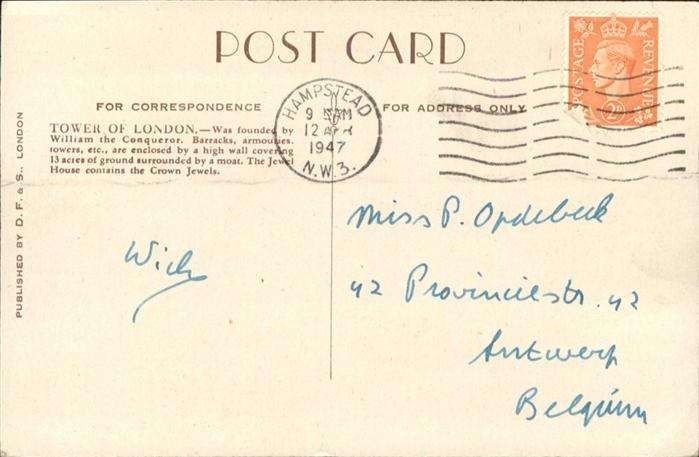 POST CARD
FOR CORRESPONDENCE
FOR ADDRESS ONLY
TOWER OF LONDON.—Was founded by
William the Conqueror. Barracks, armouries,
towers, etc., are enclosed by a high wall covering
13 acres of ground surrounded by a moat. The Jewel
House contains the Crown Jewels.
PUBLISHED BY D. F. & S., LONDON
HAMPSTEAD
9 15 AM
12 APR
1947
N.W.3.
POSTAGE
REVENUE
2D
Miss P. Opdebeek
42 Provinciestr. 42
Antwerp
Belgium